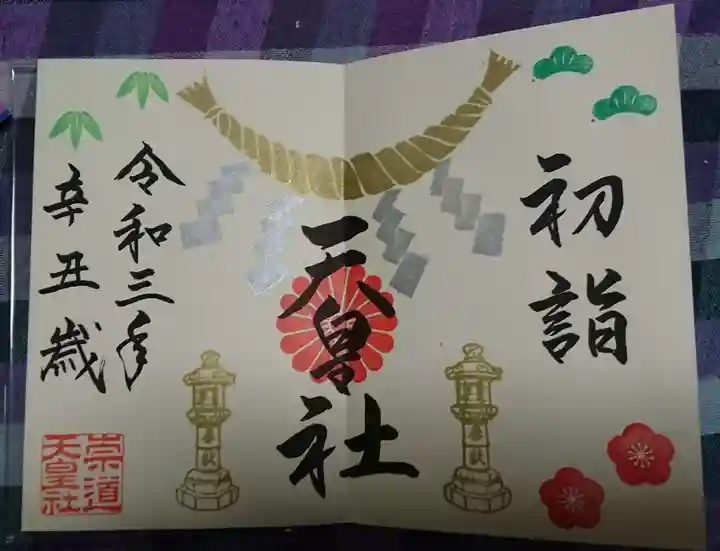 初詣
天皇社
令和三年
辛丑歳
崇道
天皇社